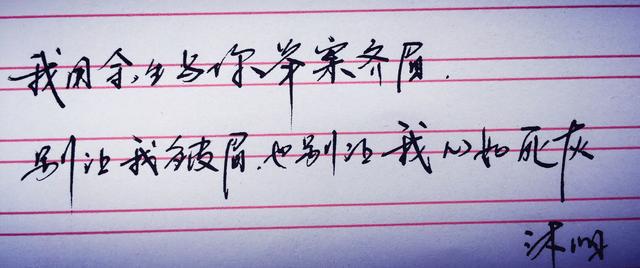 我用余生与你举案齐眉.
别让我皱眉.也别让我心如死灰